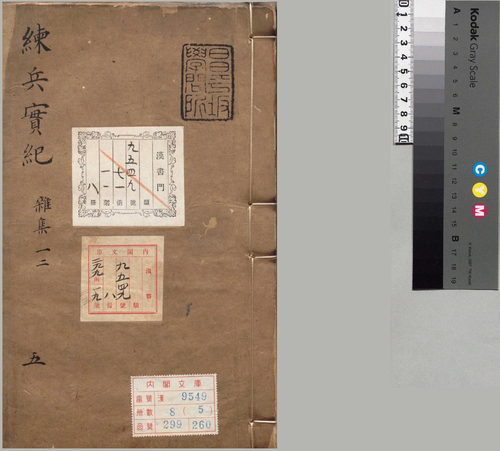 練兵實紀
雜集 一二
五
昌平坂
學問所
漢書門
九五四九
類
七一
函
一一
號
八
冊
内閣文庫
漢書
九五四九
八
内閣文庫
番號 漢 9549
冊數 8 (5)
函號 299 260
Kodak
Gray Scale
A 1 2 3 4 5 6 M 8 9 10 11 12 13 14 15 B 17 18 19
C
Y
M
0 1 2 3 4 5 6 7 8 9 10